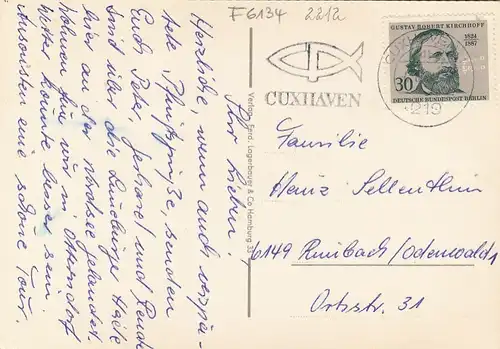 F6134 2212
GUSTAV ROBERT KIRCHHOFF
1824
1887
30
DEUTSCHE BUNDESPOST BERLIN
CUXHAVEN
219
Verlag Ferd. Lagerbauer & Co Hamburg 33
Ihr Lieben!
Herzliche, wenn auch verspä-
tete Pfingstgrüße, senden
Euch Peter, Gerhard und Gerda
Sind über die Lüneburger Heide
hier an der Nordsee gelandet.
Wohnen tun wir in Otterndorf
Wetter könnte besser sein.
Ansonsten eine schöne Tour.
Familie
Heinz Sellenthin
6149 Rimbach/Odenwald
Ortsstr. 31